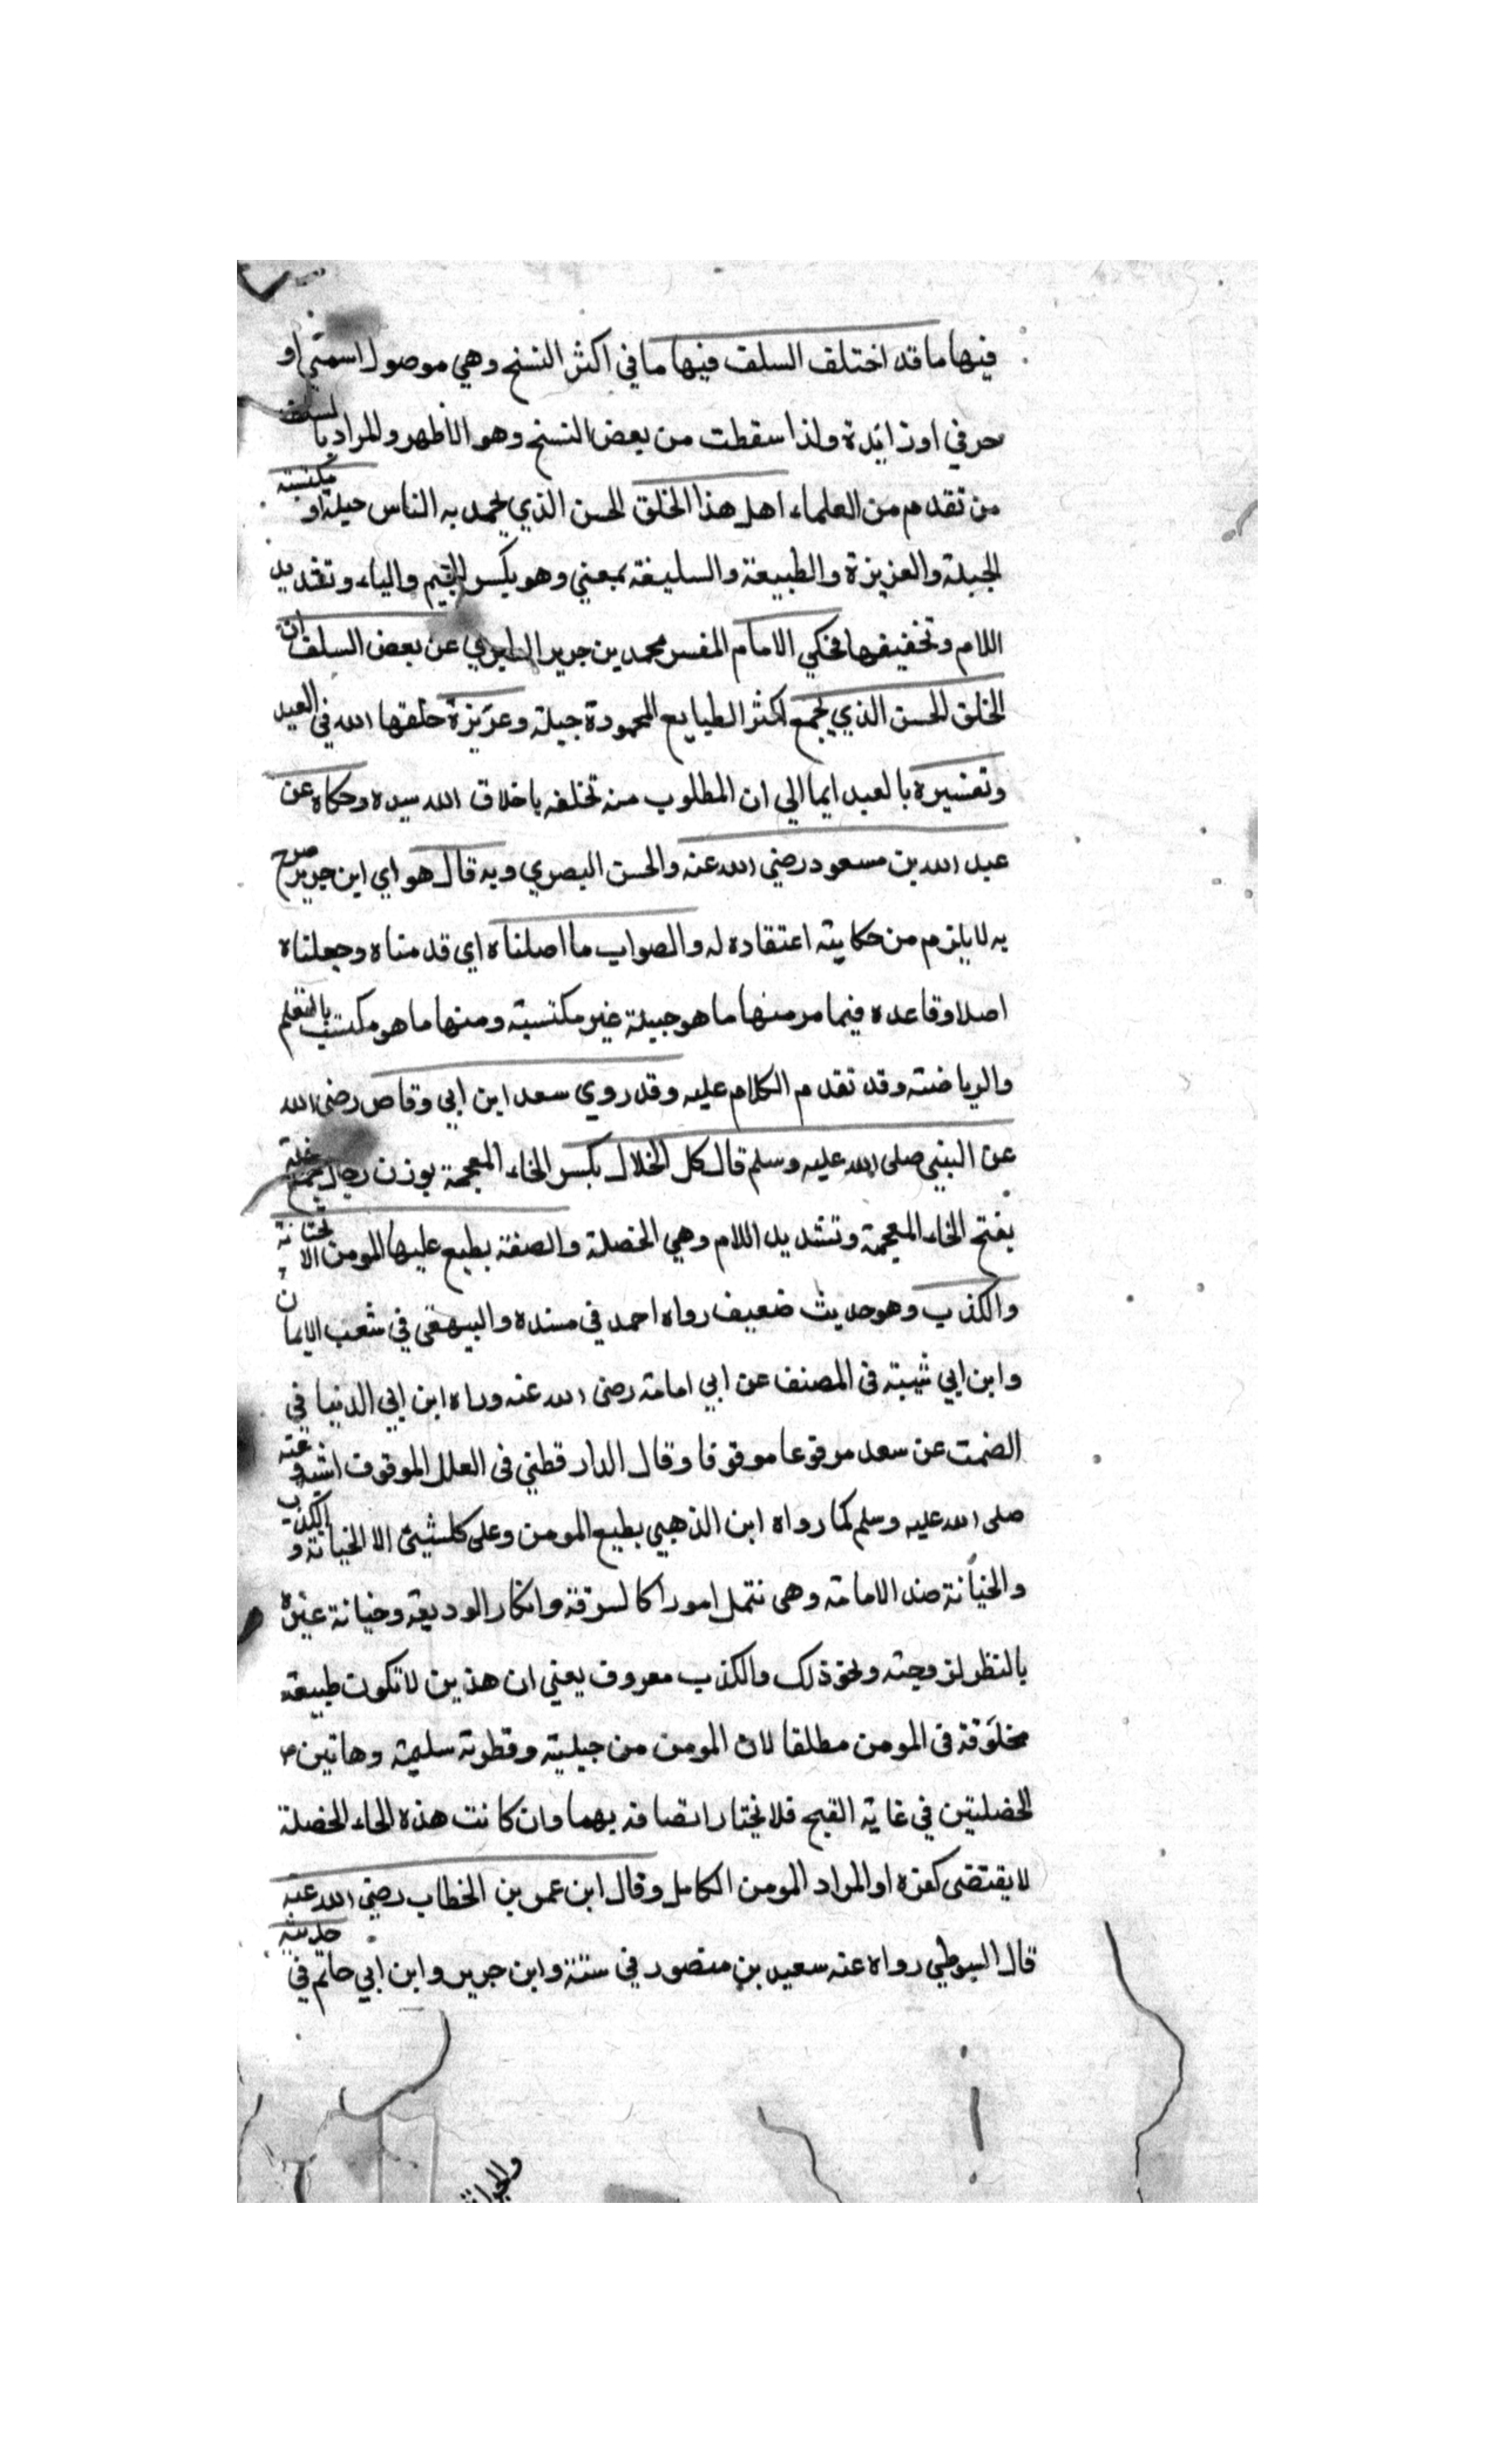 فيها ما قد اختلف السلف فيها ما في اكثر النسخ وهي موصول اسمتي او
حرفي او زايدة ولذا سقطت من بعض النسخ وهو الأظهر والمراد بالسلف
من تقدم من العلماء اهل هذا الخلق الحسن الذي يحمد به الناس جبلة او مكتسبة
الجبلة والعزيزة والطبيعة والسليقة بمعني وهو بكسر الجيم والياء وتشديد
اللام وتخفيفها فحكي الامام المفسر محمد بن جرير الطبري عن بعض السلف ان
الخلق الحسن الذي يجمع اكثر الطبايع المحمودة جبلة وعزيزة خلقها الله في العبد
وتفسيره بالعبد ايما الي ان المطلوب منه تخلقه باخلاق الله سيده وحكاه عن
عبد الله بن مسعود رضي الله عنه والحسن البصري وبه قال هو اي ابن جرير صرح
به لا يلزم من حكايته اعتقاده له والصواب ما اصلناه اي قدمناه وجعلناه
اصلا وقاعده فيما مر منها ما هو جبلة غير مكتسبة ومنها ما هو مكتسب بالتعلم
والرياضة وقد تقدم الكلام عليه وقد روي سعد ابن ابي وقاص رضي الله
عن النبي صلى الله عليه وسلم قال كل الخلال بكسر الخاء المعجمة بوزن رجال جمع خلة
بفتح الخاء المعجمة وتشديد اللام وهي الخصلة والصفة يطبع عليها المومن الا الخيانة
والكذب وهو حديث ضعيف رواه احمد في مسنده والبيهقي في شعب الايمان
وابن ابي شيبة في المصنف عن ابي امامة رضي الله عنه ورواه ابن ابي الدنيا في
الصمت عن سعد مرفوعا موقوفا وقال الدار قطني في العلل الموقوف اشبه وعنه
صلى الله عليه وسلم كما رواه ابن الذهبي يطبع المومن وعلى كلشيئ الا الخيانة والكذب
والخيانة ضد الامامة وهي تتمل امورا كالسرقة وانكار الوديعة وخيانة غيره
بالنظر لزوجته ونحو ذلك والكذب معروف يعني ان هذين لا تكون طبيعة
مخلوقة في المومن مطلقا لان المومن من جبليته وفطرته سليمة وهاتين
الخصلتين في غاية القبح فلا يختار اتصافه بهما وان كانت هذه الحاء الخصلة
لا يقتضي كفره او المراد المومن الكامل وقال ابن عمر بن الخطاب رضي الله عنه
قال السيوطي رواه عنه سعيد بن منصور في سننه وابن جرير وابن ابي حاتم في حديثه